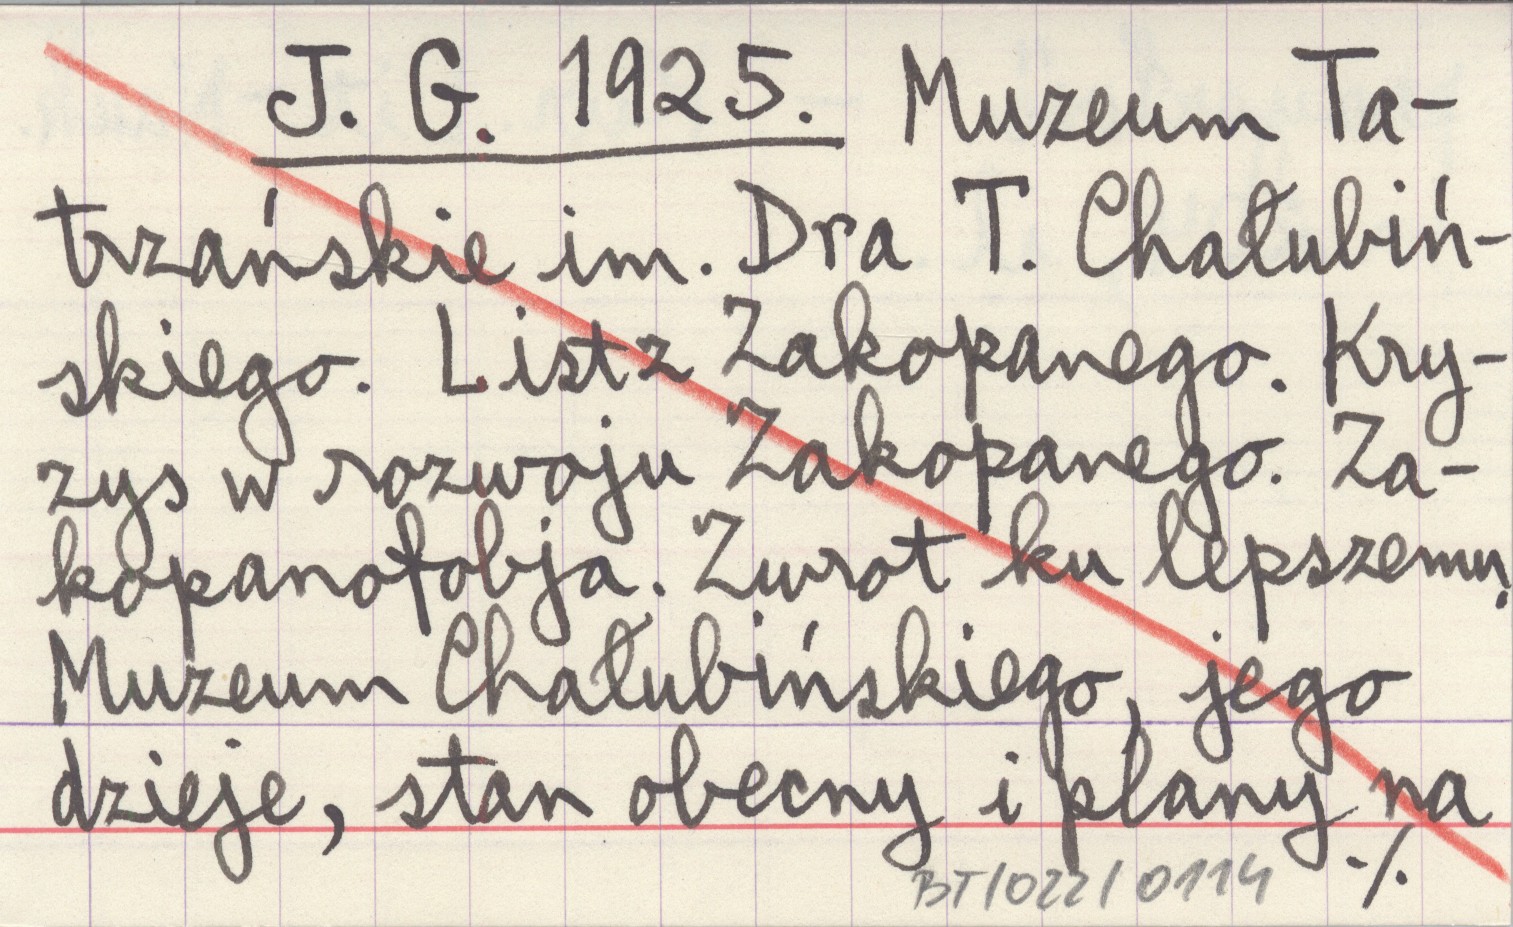 J. G. 1925. Muzeum Ta-
trzańskie im. Dra T. Chałubiń-
skiego. List z Zakopanego. Kry-
zys w rozwoju Zakopanego. Za-
kopanofobja. Zwrot ku lepszemu.
Muzeum Chałubińskiego, jego
dzieje, stan obecny i plany na
./.
BT/022/0114